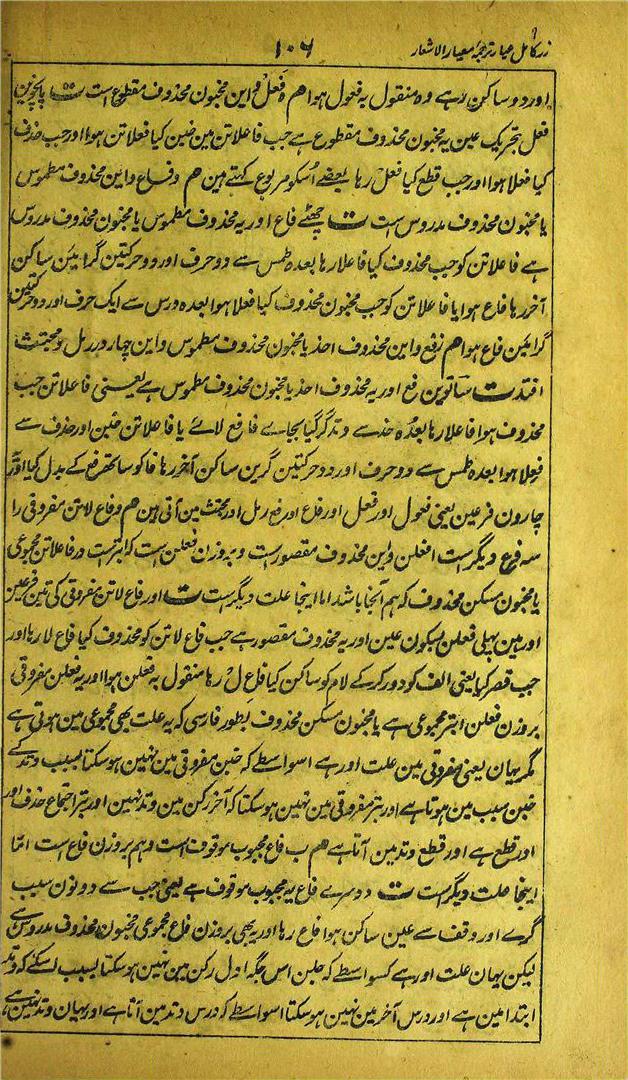 زر کامل عیار ترجمہ معیار الاشعار
۱۰۶
اور دو ساکن رہے وہ منقول بہ فعول ہوا ھم ہ فعل و این مخبون محذوف مقطوع است ت پانچوین
فعل بتحریک عین یہ مخبون محذوف مقطوع ہے جب فاعلاتن مین خبن کیا فعلاتن ہوا اور جب حذف
کیا فعلا ہوا اور جب قطع کیا فعل رہا بعضے اُسکو مربوع کہتے ہین ھم و فاع و این محذوف مطموس
یا مخبون محذوف مدروس ست ت چھٹے فاع اور یہ محذوف مطموس یا مخبون محذوف مدروس
ہے فاعلاتن کو جب محذوف کیا فاعلا رہا بعدہ طمس سے دو حرف اور دو حرکتین گرائین ساکن
آخر رہا فاع ہوا یا فاعلاتن کو جب مخبون محذوف کیا فعلا ہوا بعدہ درس سے ایک حرف اور دو حرکتین
گرائین فاع ہوا ھم ز فع و این محذوف احذ یا مخبون محذوف مطموس و این چار در رمل و مجتث
افتد ت ساتوین فع اور یہ محذوف احذ یا مخبون محذوف مطموس ہے یعنی فاعلاتن جب
محذوف ہوا فاعلا رہا بعدہ حذ سے وتد گر گیا بجاے فا فع لائے یا فاعلاتن خبن اور حذف سے
فعلا ہوا بعدہ طمس سے دو حرف اور دو حرکتین گرین ساکن آخر رہا فا کو ساتھ فع کے بدل کیا اور یہ
چارون فرعین یعنی فعول اور فعل اور فاع اور فع رمل اور مجتث مین آتی ہین ھم و فاع لاتن مفروقی را
سہ فرع دیگر است ا فعلن و این محذوف مقصور است و بروزن فعلن است کہ ابترست در فاعلاتن مجموعی
یا مخبون مسکن محذوف کہ ہم آنجا باشد اما اینجا علت دیگر است ت اور فاع لاتن مفروقی کی تین فرعین
اور ہین پہلی فعلن بسکون عین اور یہ محذوف مقصور ہے جب فاع لاتن کو محذوف کیا فاع لا رہا اور
جب قصر کیا یعنی الف کو دور کر کے لام کو ساکن کیا فاع لْ رہا منقول بہ فعلن ہوا اور یہ فعلن مفروقی
بروزن فعلن ابتر مجموعی ہے یا مخبون مسکن محذوف بطور فارسی کہ یہ علت بھی مجموعی مین ہوتی ہے
مگر یہان یعنی مفروقی مین علت اور ہے اسواسطے کہ خبن مفروقی مین نہین ہو سکتا بسبب وتد کے
خبن سبب مین ہوتا ہے اور بتر مفروقی مین نہین ہو سکتا کہ آخر رکن مین وتد نہین اور بتر اجتماع حذف اور
اور قطع ہے اور قطع وتد مین آتا ہے ھم ب فاع مجبوب موقوف است و ہم بروزن فاع است امّا
اینجا علت دیگر است ت دوسرے فاع یہ مجبوب موقوف ہے یعنی جب سے دونون سبب
گرے اور وقف سے عین ساکن ہوا فاع رہا اور یہ بھی بروزن فاع مجموعی مخبون محذوف مدروس ہے
لیکن یہان علت اور ہے کسواسطے کہ خبن اس جگہ اول رکن مین نہین ہو سکتا بسبب اسکے کہ وتد
ابتدا مین ہے اور درس آخر مین نہین ہو سکتا اسواسطے کہ درس وتد مین آتا ہے اور یہان وتد نہین ہے